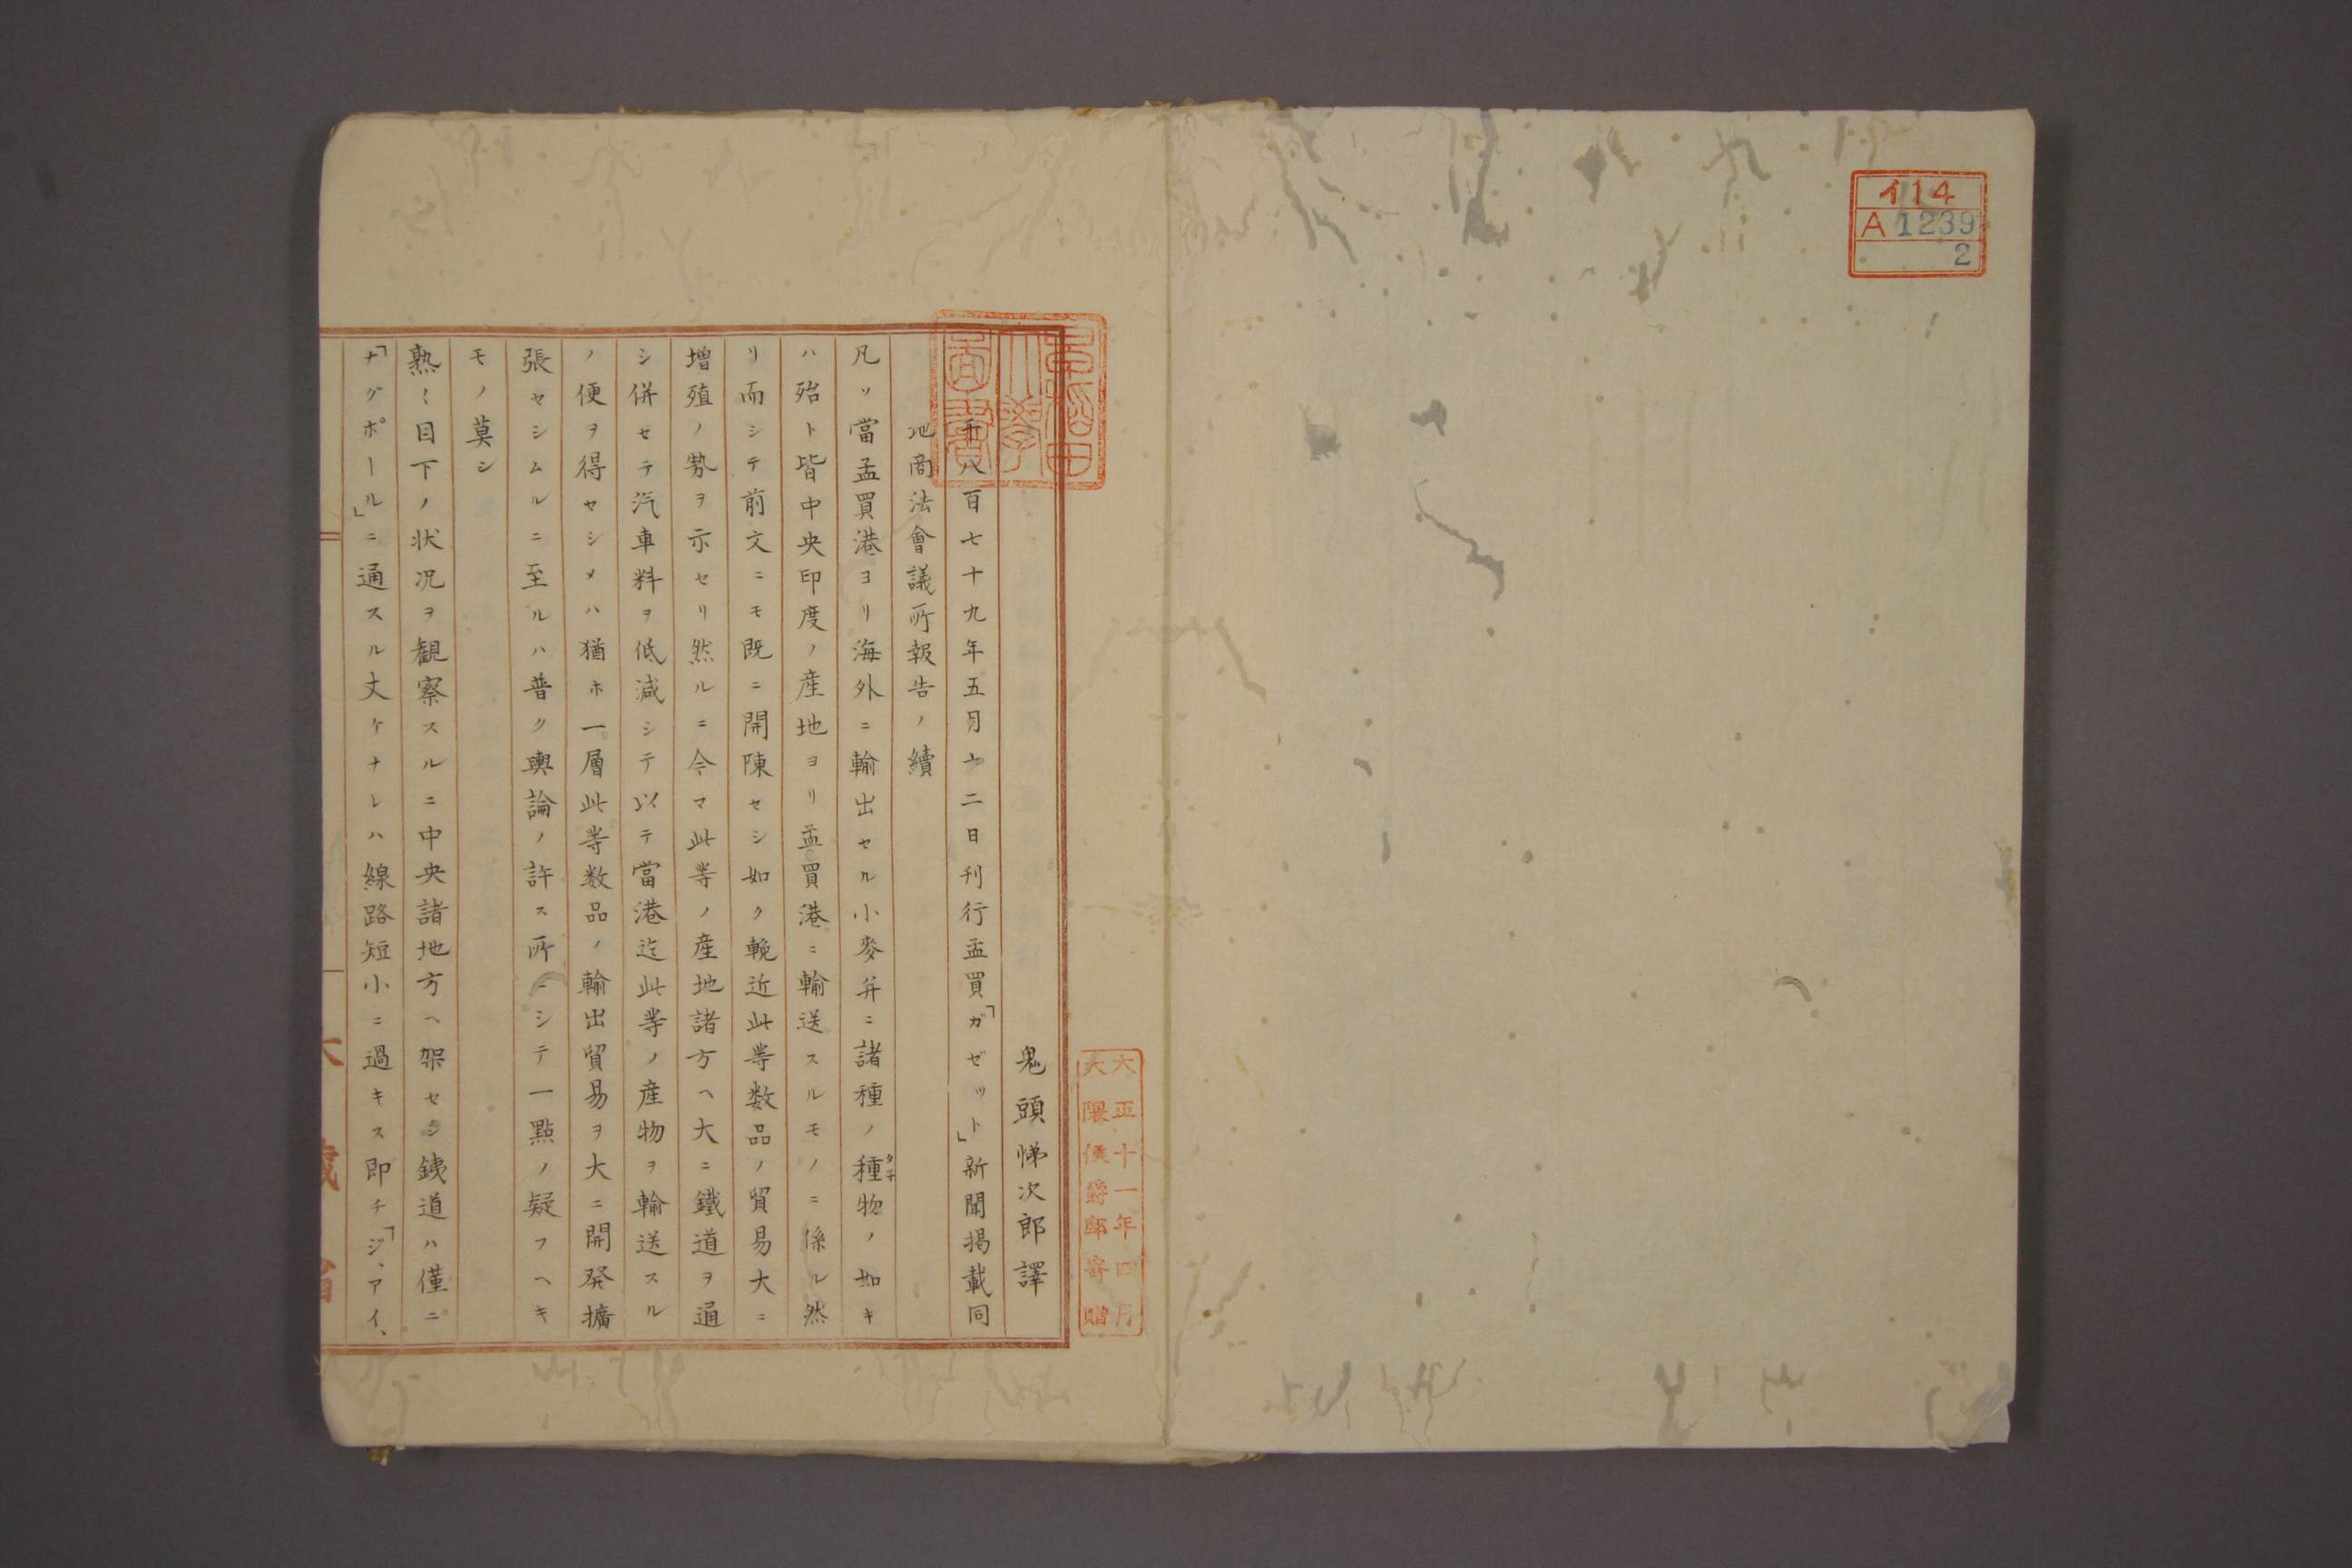 イ14
A 1239
2
大正十一年四月
大隈侯爵邸寄贈
早稲田
大學
圖書
鬼頭悌次郎譯
千八百七十九年五月六二日刊行孟買「ガゼット」新聞掲載同
地商法會議所報告ノ續
凡ソ當孟買港ヨリ海外ニ輸出セル小麥并ニ諸種ノ種物ノ如キ
タネ
ハ殆ト皆中央印度ノ産地ヨリ孟買港ニ輸送スルモノニ係ル然
リ而シテ前文ニモ既ニ開陳セシ如ク輓近此等数品ノ貿易大ニ
増殖ノ勢ヲ示セリ然ルニ今マ此等ノ産地諸方ヘ大ニ鐵道ヲ通
シ併セテ汽車料ヲ低減シテ以テ當港迄此等ノ産物ヲ輸送スル
ノ便ヲ得セシメハ猶ホ一層此等数品ノ輸出貿易ヲ大ニ開発擴
張セシムルニ至ルハ普ク輿論ノ許ス所ニシテ一點ノ疑フヘキ
モノ莫シ
熟〻目下ノ状况ヲ観察スルニ中央諸地方ヘ架セシ鉄道ハ僅ニ
「ナグポール」ニ通スル丈ケナレハ線路短小ニ過キス即チ「ジ、アイ、
大藏省